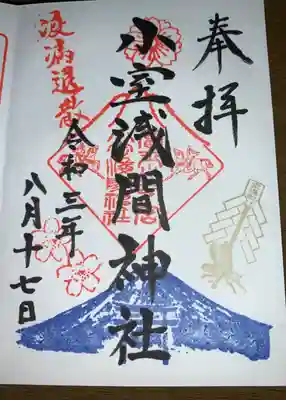 奉拝
小室浅間神社
疫病退散
令和三年
八月十七日